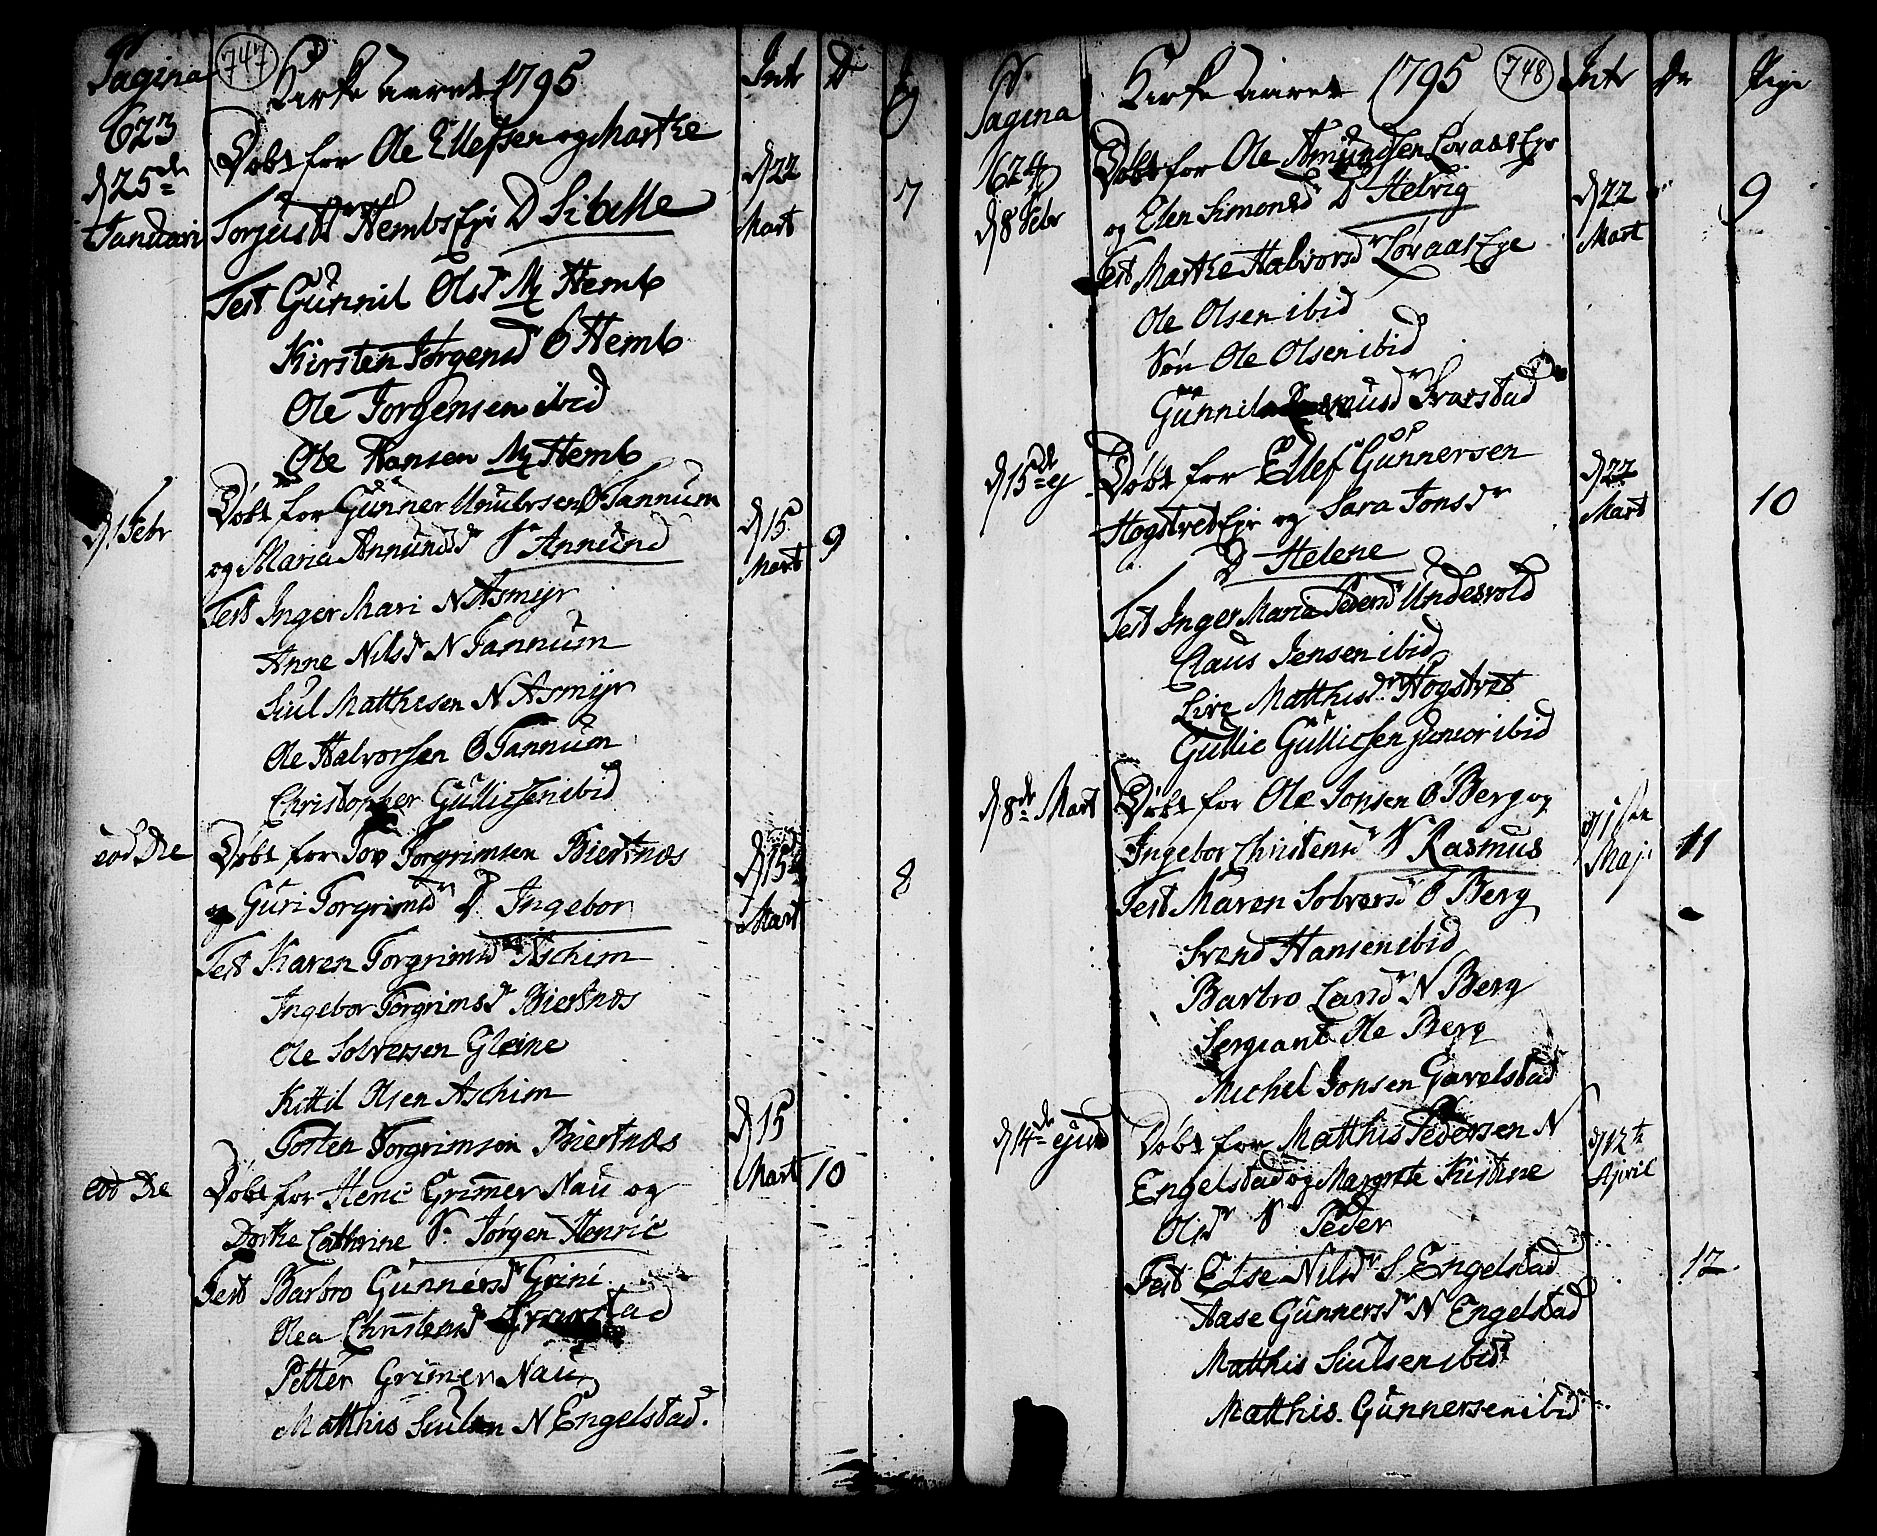 Pagina 747 Kirke aaret 1795 Intr D
623
d 25de Januari
Døbt for Ole Ellefsen og Marthe
Torjusdr Hembs Eje D Sibille d 22 Mart 7
Test Gunnil Olsdr M Hemb
Kirsten Jørgensdr Ø Hemb
Ole Jorgensen ibid
Ole Hansen M Hemb
d 1 Febr Døbt for Gunner Ø Tannum
og Maria Annundsdr S Annund d 15 Mart 9
Test Inger Mari N Asmyr
Anne Nilsdr N Tannum
Siul Matthesen N Asmyr
Ole Halvorsen Ø Tannum
Christopher Gullicsen ibid
eod Die Døbt for Tov Torgrimsen Biertnæs
og Guri Torgrimsdr D Ingebor d 15 Mart 8
Test Karen Torgrimsdr Aschim
Ingebor Torgrimsdr Biertnæs
Ole Solversen Gleine
Kittil Olsen Aschim
Torsten Torgrimsen Biertnæs
eod Die Døbt for Henic Grimer Nau og d 15 Mart 10
Dorthe Cathrine S. Jørgen Henric
Test Barbro Gunnersdr Grini
Olea Christensdr Svarstad
Petter Grimer Nau
Matthis Siulsen N Engelstad.
Pagina Kirke aaret 1795 748 Intr Dr Pige
624
d 8 Febr Døbt for Ole Amundsen Løraas Eje
og Elen Simonsd D Helvig d 22 Mart 9
Test Marthe Halvorsdr Løraas Eje
Ole Olsen ibid
Søn Ole Olsen ibid
Gunnil Svarstad
d 15de ej Døbt for Ellef Gunnersen d 22 Mart
Høgstvet Eje og Sara Jonsdr 10
D Helene
Test Inger Maria Pedersd Undesvold
Claus Jensen ibid
Live Matthisdr Høgstvet
Gullic Gullicsen junior ibid
d 8de Mart Døbt for Ole Jonsen Ø Berg og
Ingebor Christensdr S Rasmus Maj 11
Test Maren Solversdr Ø Berg
Svend Hansen ibid
Barbro Larsdr N Berg
Sergiant Ole Berg
Michel Jonsen Gavelstad
d 14de ejusd Døbt for Matthis Pedersen N d 12te April
Engelstad og Margrete Kistine
Olsdr S Peder
Test Else Nilsdr S Engelstad 12
Aase Gunnersdr N Engelstad
Matthis Siulsen ibid
Matthis Gunnersen ibid